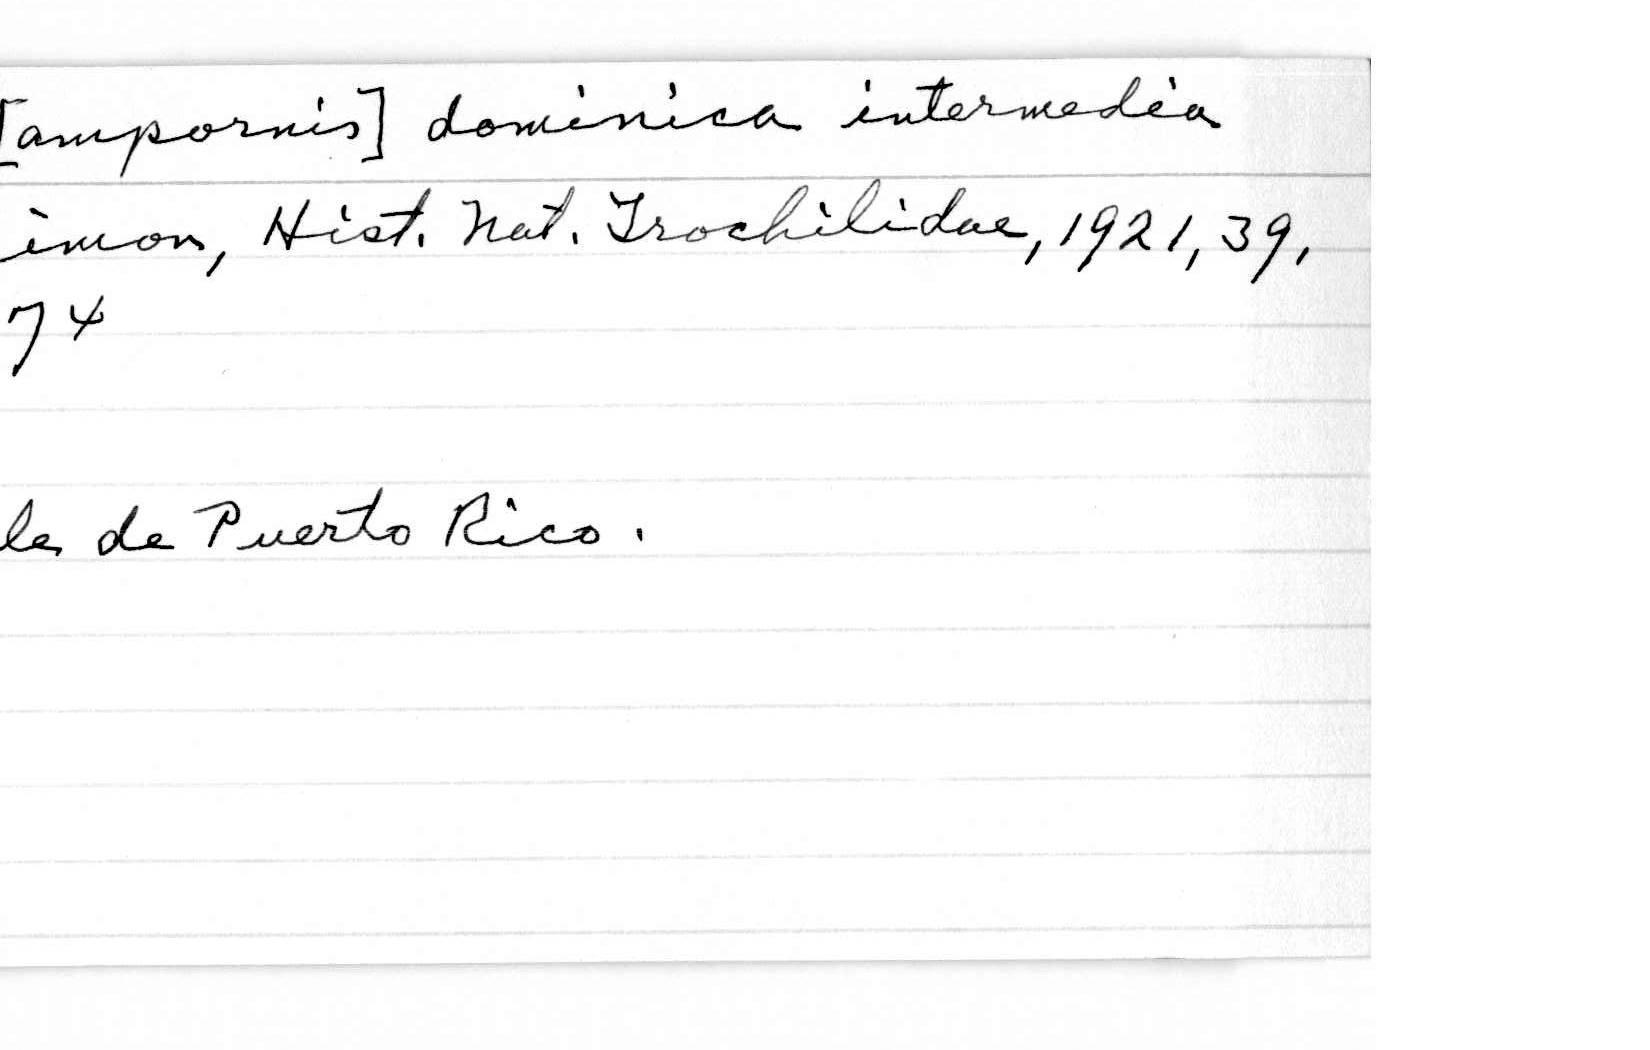 [ampornis] dominica intermedia
imon, Hist. Nat. Trochilidae, 1921, 39,
74
le de Puerto Rico.